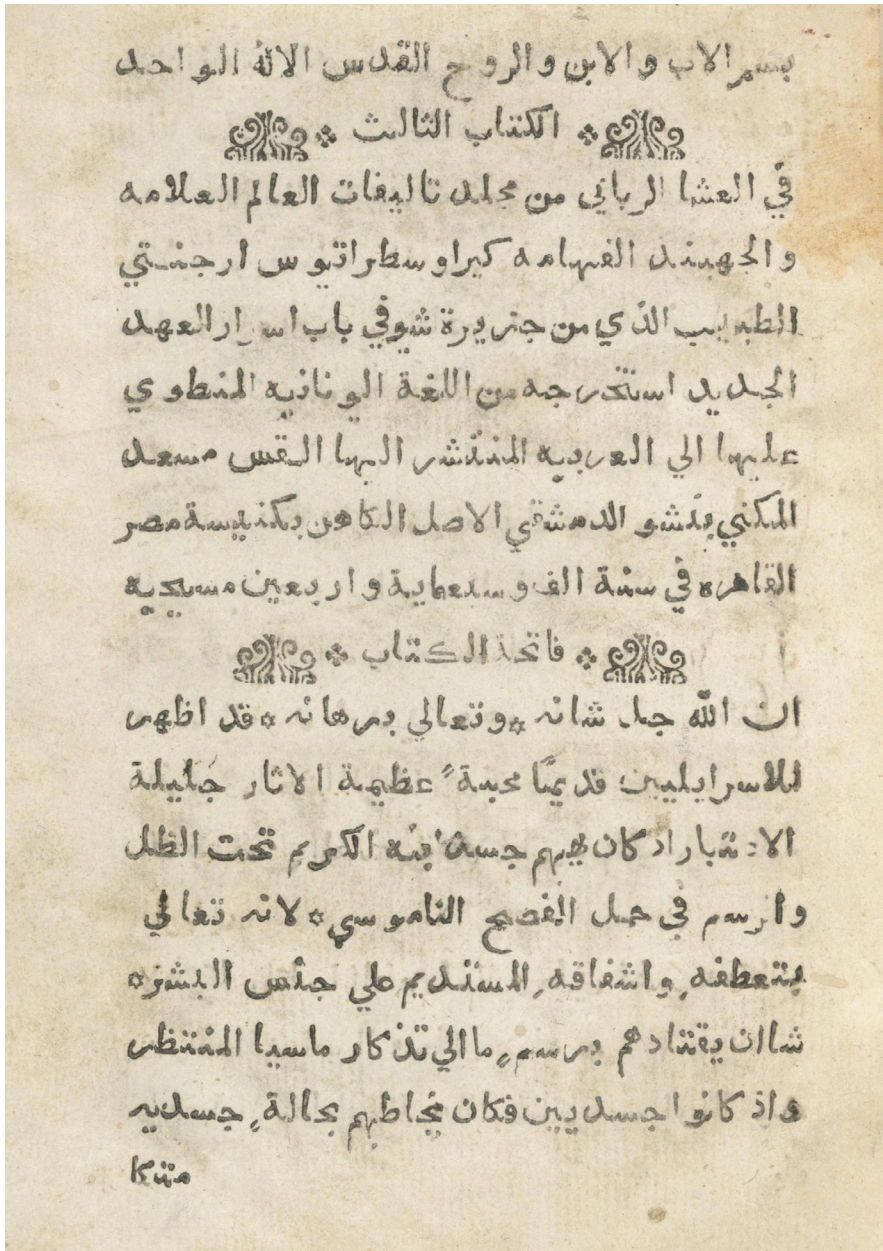 بسم الاب والابن والروح القدس الاله الواحد
الكتاب الثالث
في العشا الرباني من مجلد تاليفات العالم العلامه
والجهبند الفهامه كيراوسطراتيوس ارجنتي
الطبيب الذي من جزيرة شيو في باب اسرار العهد
الجديد استخرجه من اللغة اليونانيه المنطوي
عليها الي العربيه المنتشر اليها القس مسعد
المكني بنشو الدمشقي الاصل الكاهن بكنيسة مصر
القاهره في سنة الف وسبعماية واربعين مسيحيه
فاتحة الكتاب
ان الله جل شانه وتعالي برهانه قد اظهر
للاسرايليين قديمًا محبةً عظيمة الاثار جليلة
الاعتبار اذ كان يهبهم جسد ابنه الكريم تحت الظل
والرسم في حمل الفصح الناموسي لانه تعالي
بتعطفه واشفاقه المستديم علي جنس البشر
شا ان يقتادهم برسمٍ ما الي تذكار ماسيا المنتظر
واذ كانوا جسديين فكان يخاطبهم بحالةٍ جسديه
متكا